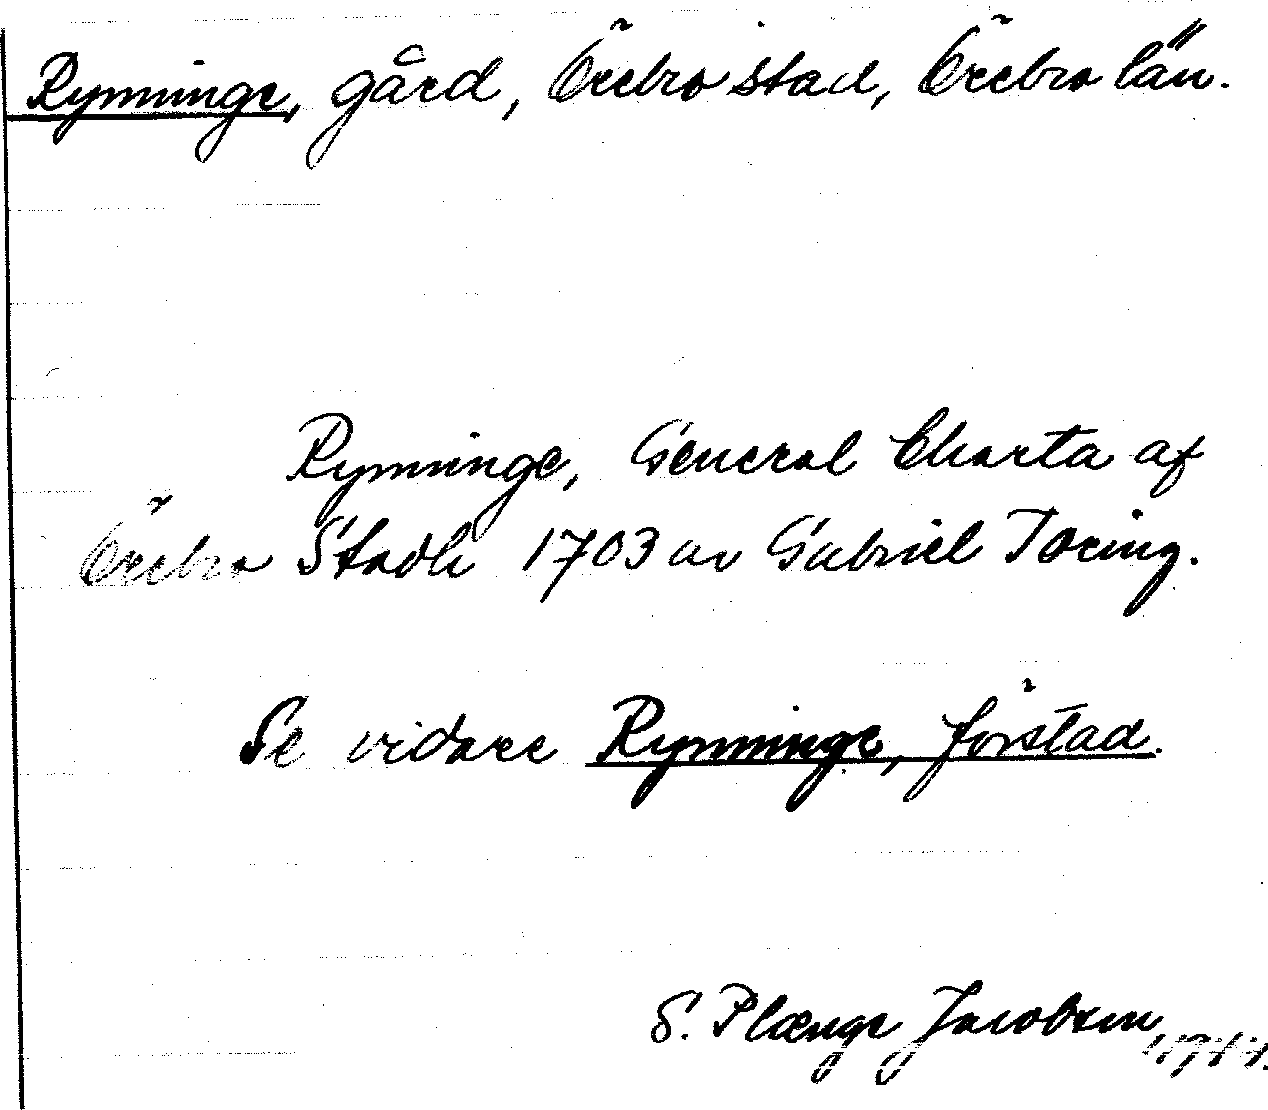 Rynninge, gård, Örebro stad, Örebro län.
Rynninge, General Charta af
Örebro Stadh 1703 av Gabriel Toring.
Se vidare Rynninge, förstad.
S. Plænge Jacobsen,